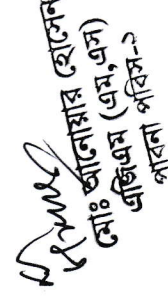 মোঃ আনোয়ার হোসেন
এজিএম (এম,এস)
পাবনা পবিস-১